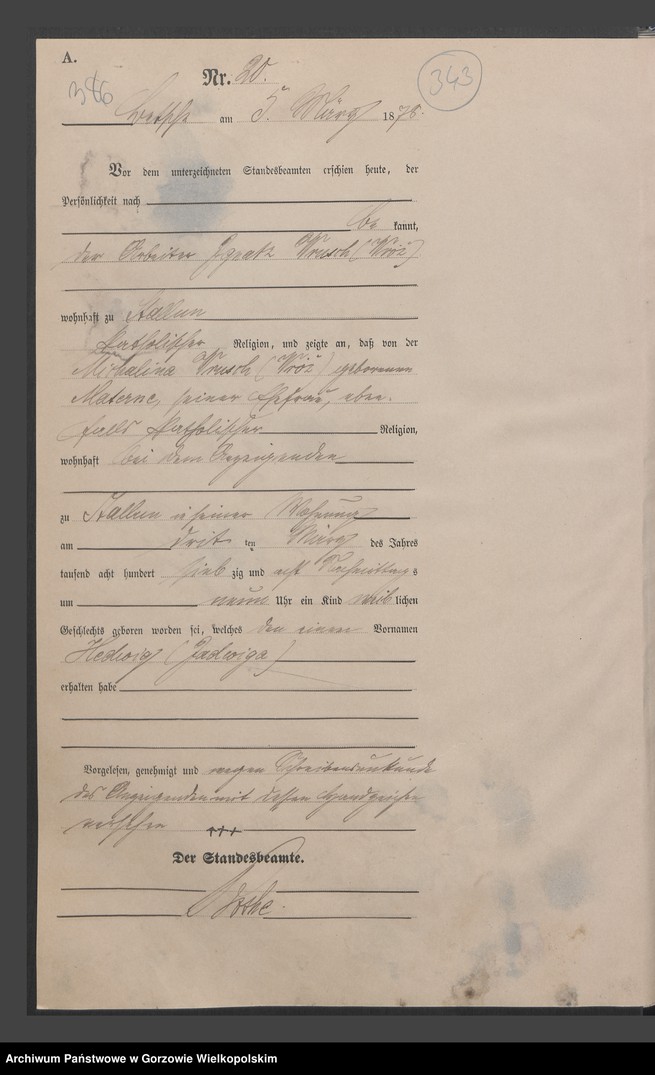 A.
Nr. 20.
346
343
Betsche am 5. März 1878.
Vor dem unterzeichneten Standesbeamten erschien heute, der
Persönlichkeit nach
be kannt,
der Arbeiter Ignatz Wrusch (Wróż)
wohnhaft zu Stallun
katholischer Religion, und zeigte an, daß von der
Michalina Wrusch (Wróż) geborenen
Materne, seiner Ehefrau, eben-
falls katholischer Religion,
wohnhaft bei dem Anzeigenden
zu Stallun in seiner Wohnung
am dritten März des Jahres
tausend acht hundert siebzig und acht Nachmittags
um neun Uhr ein Kind weiblichen
Geschlechts geboren worden sei, welches den einen Vornamen
Hedwig (Jadwiga)
erhalten habe
Vorgelesen, genehmigt und wegen Schreibensunkunde
des Anzeigenden mit dessen Handzeichen
versehen +++
Der Standesbeamte.
Archiwum Państwowe w Gorzowie Wielkopolskim